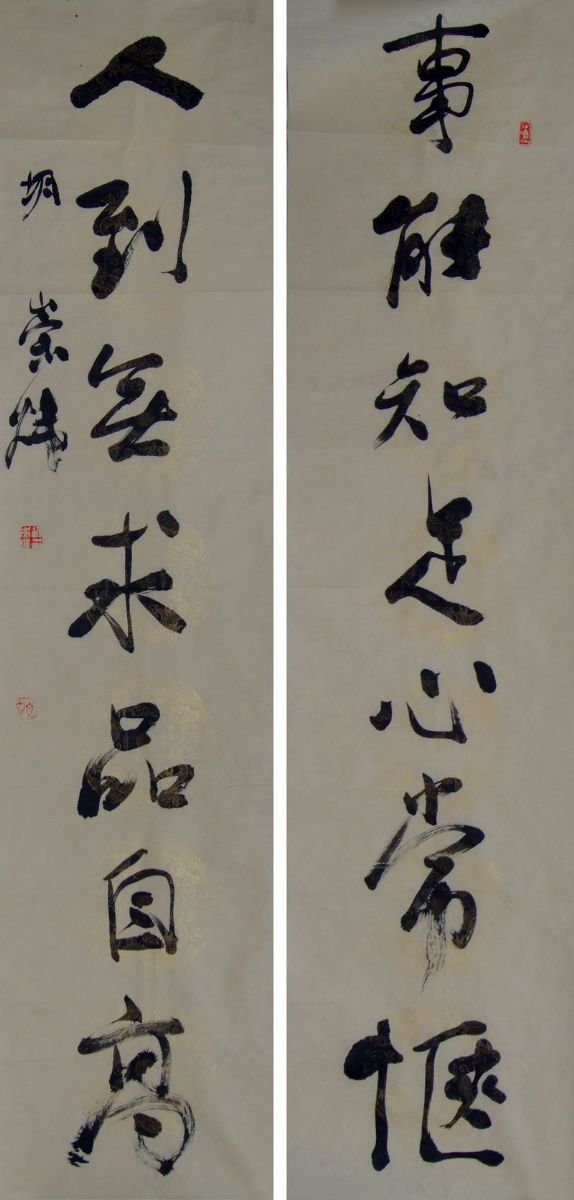 事能知足心常惬
人到無求品自高
崇